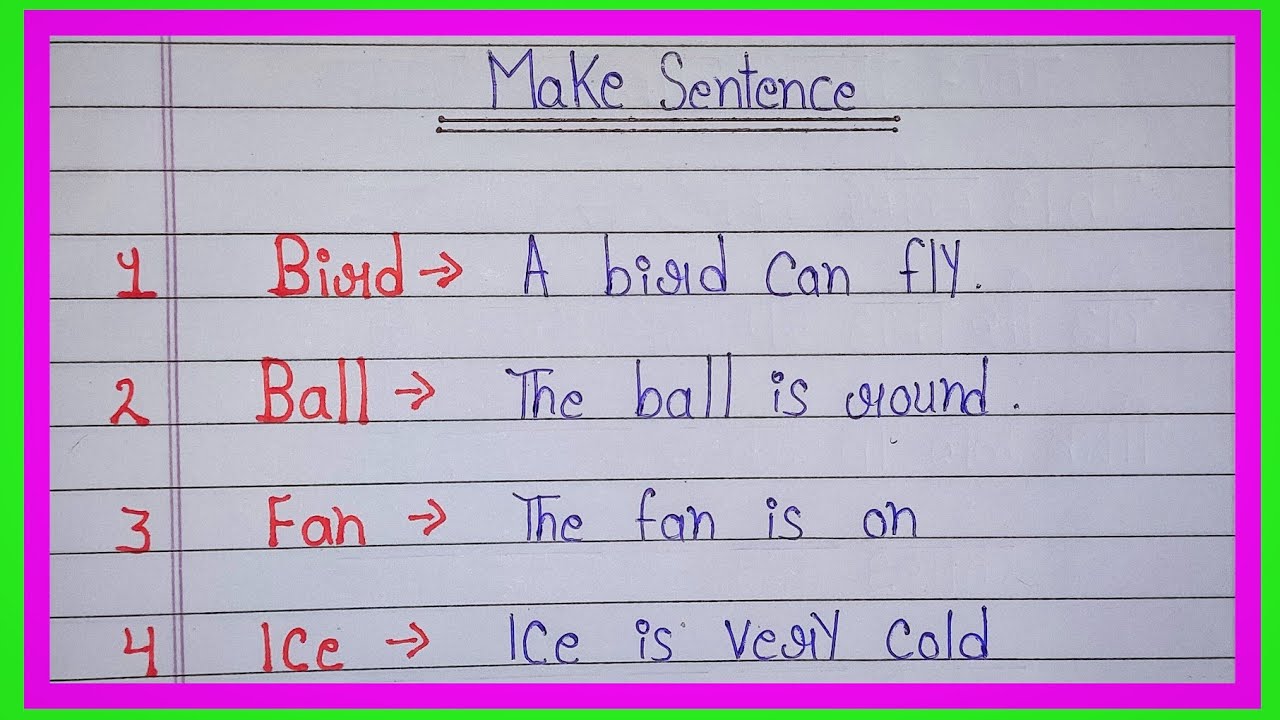 Make Sentence
1 Bird → A bird can fly.
2 Ball → The ball is round.
3 Fan → The fan is on
4 Ice → Ice is very cold